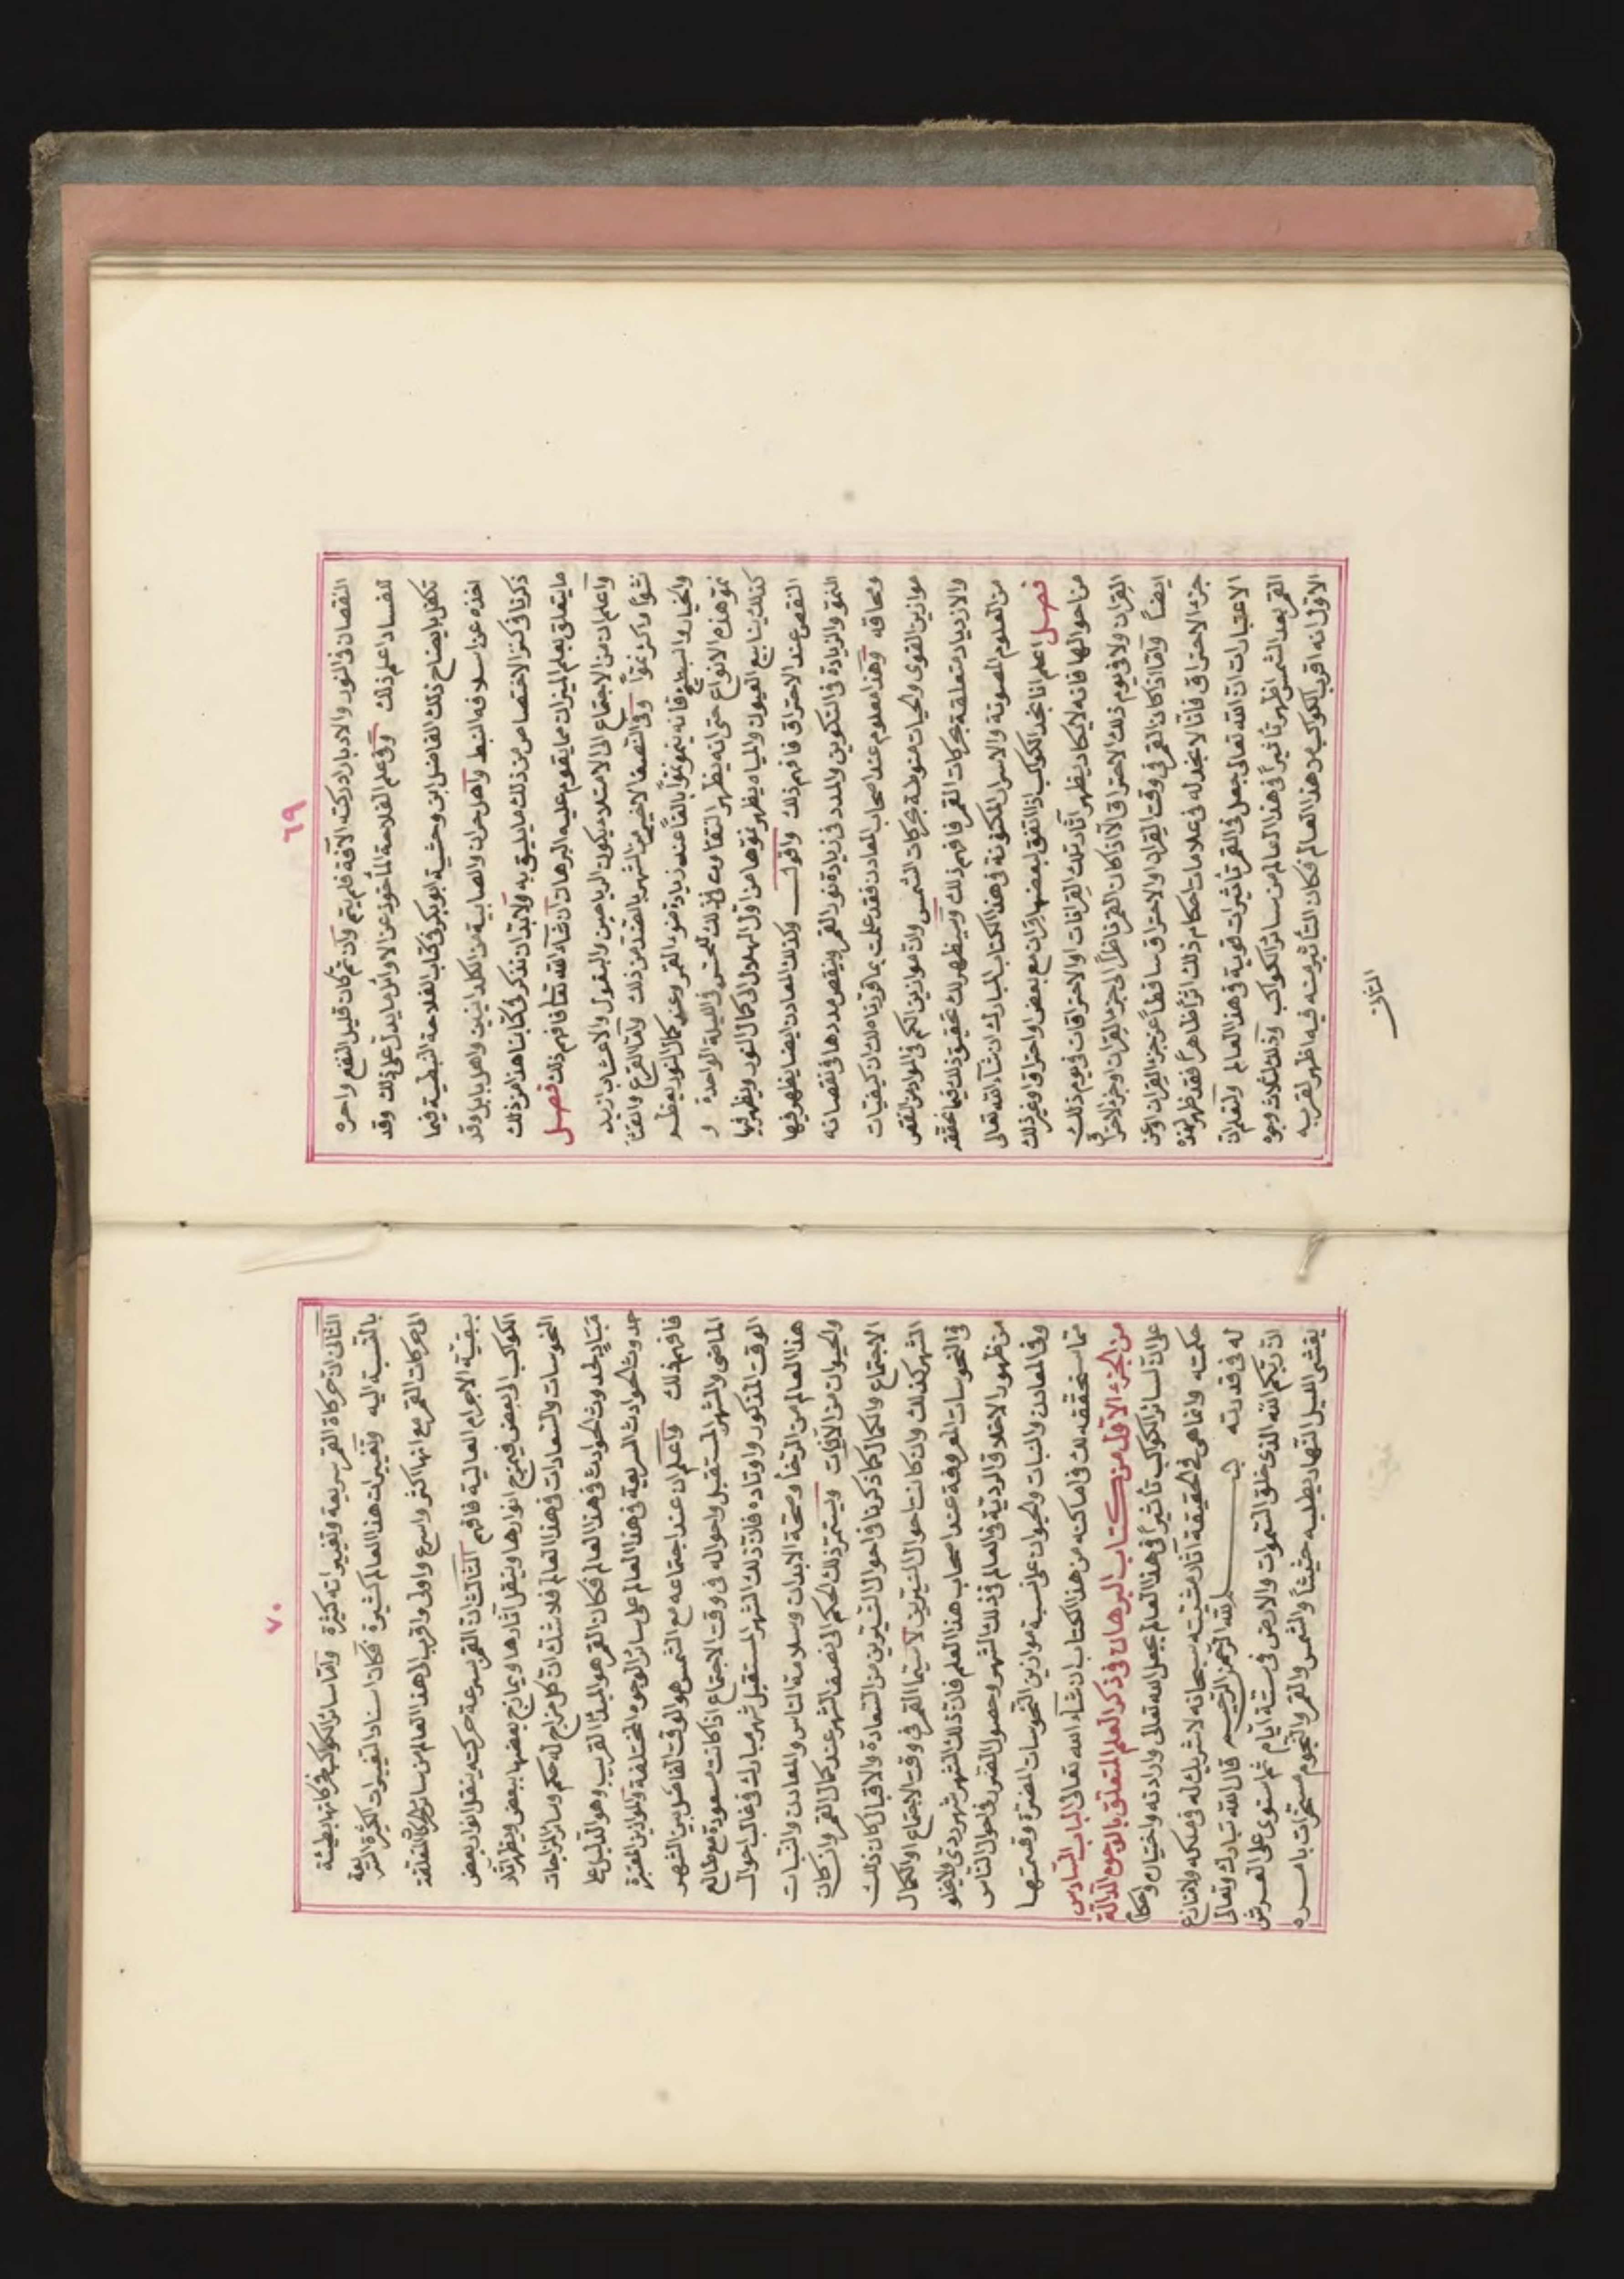 ٦٩
النقصان فى النور والادبار ادركته الآفة فلم يتم وان تم كان قليل النفع واحره
للفساد اعلم ذلك وفى علم الفلاحة المأخوذ عن الاوائل ما يدل على ذلك وقد
تكفل بايضاح ذلك الفاضل ابن وحشية ابو بكر فى كتاب الفلاحة النبطية فيما
اخذه عن اسلافه النبط واهل حران والصابية من الكلدانيين واهل بابل وقد
ذكرنا فى كنز الاختصاص من ذلك ما يليق به ولا بد ان نذكر فى كتابنا هذا من ذلك
ما يتعلق بعلم الميزان مما يقوم عليه البرهان ان شاء الله تعا فافهم ذلك فصل
واعلم ان من الاجتماع الى الامتلاء يكون الرياحين والبقول والاعشاب ازيد
نشوًا واكثر نموًا وفى النصف الاخير من الشهر بالضد من ذلك واما القرع والقثا
والخيار والبطيخ فانه ينمو نموًا بالغًا عند زيادة ضوء القمر وعند كمال النور يعظم
نمو هذه الانواع حتى انه يظهر التفاوت فى ذلك للحس فى الليلة الواحدة و
كذلك ينابيع العيون والمياه يظهر نموها من اول الهلال الى كمال النور ويظهر فيها
النقص عند الاحتراق فافهم ذلك واقول وكذلك المعادن ايضا يظهر فيها
النمو والزيادة فى التكوين والمدد فى زيادة نور القمر وينقص مددها فى نقصانه
ومحاقه وهذا معلوم عند اصحاب المعادن فقد علمت بما قررناه لك ان كيفيات
موازين القوى والحيات منوطة بحركات الشمس وان موازين الكم فى المواد من النقص
والازدياد متعلقة بحركات القمر فافهم ذلك وسيظهر لك تحقيق ذلك فيما نحققه
من العلوم المصونة والاسرار المكنونة فى هذا الكتاب المبارك ان شاء الله تعالى
فصل اعلم انا نجد الكواكب اذا اتفق لبعضها قران مع بعض او احتراق او غير ذلك
من احوالها فانه لا يكاد يظهر آثار تلك القرانات او الاحتراقات فى يوم ذلك
القران ولا فى يوم ذلك الاحتراق الا اذا كان القمر ناظرًا الى جزء القران او جزء الاحتراق
ايضًا واما اذا كان القمر فى وقت القران والاحتراق ساقطًا عن جزء القران او عن
جزء الاحتراق فانا لا نجد له فى علامات احكام ذلك اثرًا ظاهرًا فقد ظهر بهذه
الاعتبارات ان الله تعالى جعل فى القمر تأثيرات قوية فى هذا العالم ولنعلم ان
القمر بعد الشمس اظهر تأثيرًا فى هذا العالم من سائر الكواكب وذلك لثلاث وجوه
الاول انه اقرب الكواكب من هذا العالم فكان التأثير منه فيه اظهر لقربه
الثانى
٧٠
الثانى ان حركاة القمر سريعة وتغييراته كثيرة واما سائر الكواكب فحركاتها بطيئة
بالنسبة اليه وتغييرات هذا العالم كثيرة فكان اسناد التغييرات الكثيرة السريعة
الى حركات القمر مع انها اكثر واسرع واولى واقرب الى هذا العالم من سائر الحركات المتعلقة
ببقية الاجرام العالية فافهم الثالث ان القمر بسرعة حركته ينقل انوار بعض
الكواكب الى بعض فيمزج انوارها وينقل آثارها ويمازج بعضها ببعض ويظهر آثار
النحوسات والسعادات فى هذا العالم فلا شك ان كل مزاج له حكم وسائر المزاجات
مباد لحدوث الحوادث فى هذا العالم فكان القمر هو المبدأ القريب وهو الدليل على
حدوث الحوادث السريعة فى هذا العالم على سائر الوجوه المختلفة والموازين المعتبرة
فافهم ذلك واعلم ان عند اجتماعه مع الشمس هو الوقت الفاصل بين الشهر
الماضى والشهر المستقبل واحواله فى وقت الاجتماع اذا كانت مسعودة مع طالع
الوقت المذكور واوتاده فان ذلك الشهر المستقبل شهر مبارك فى غالب احوال
هذا العالم من الرخاء وصحة الابدان وسلامة الناس والمعادن والنبات
والحيوان من الآفات ويستمر ذلك الحكم الى نصف الشهر عند كمال القمر وان كان
الاجتماع والكمال كما ذكرنا فى احوال النيرين من السعادة والاقبال كان ذلك
الشهر كذلك وان كانت احوال النيرين لا سيما القمر فى وقت الاجتماع او الكمال
فى النحوسات المعروفة عند اصحاب هذا العلم فان ذلك الشهر شهر ردى ولا يخلو
من ظهور الاخلاق الردية فى العالم فى ذلك الشهر وحصول الضرر فى احوال الناس
وفى المعادن والنبات والحيوان على نسبة موازين النحوسات المضرة وقسمتها
مما سنحققه لك فى اماكنه من هذا الكتاب ان شاء الله تعالى الباب السادس
من الجزء الاول من كتاب البرهان فى ذكر العلم المتعلق بالوجوه الدالة
على ان لسائر الكواكب تأثيرًا فى هذا العالم بجعل الله تعالى وارادته واختياره واحكام
حكمته وانما هى فى الحقيقة آثار مشيئته سبحانه لا شريك له فى ملكه ولا منازع
له فى قدرته بسم الله الرحمن الرحيم قال الله تبارك وتعالى
ان ربكم الله الذى خلق السموات والارض فى ستة ايام ثم استوى على العرش
يغشى الليل النهار يطلبه حثيثًا والشمس والقمر والنجوم مسخرات بامره